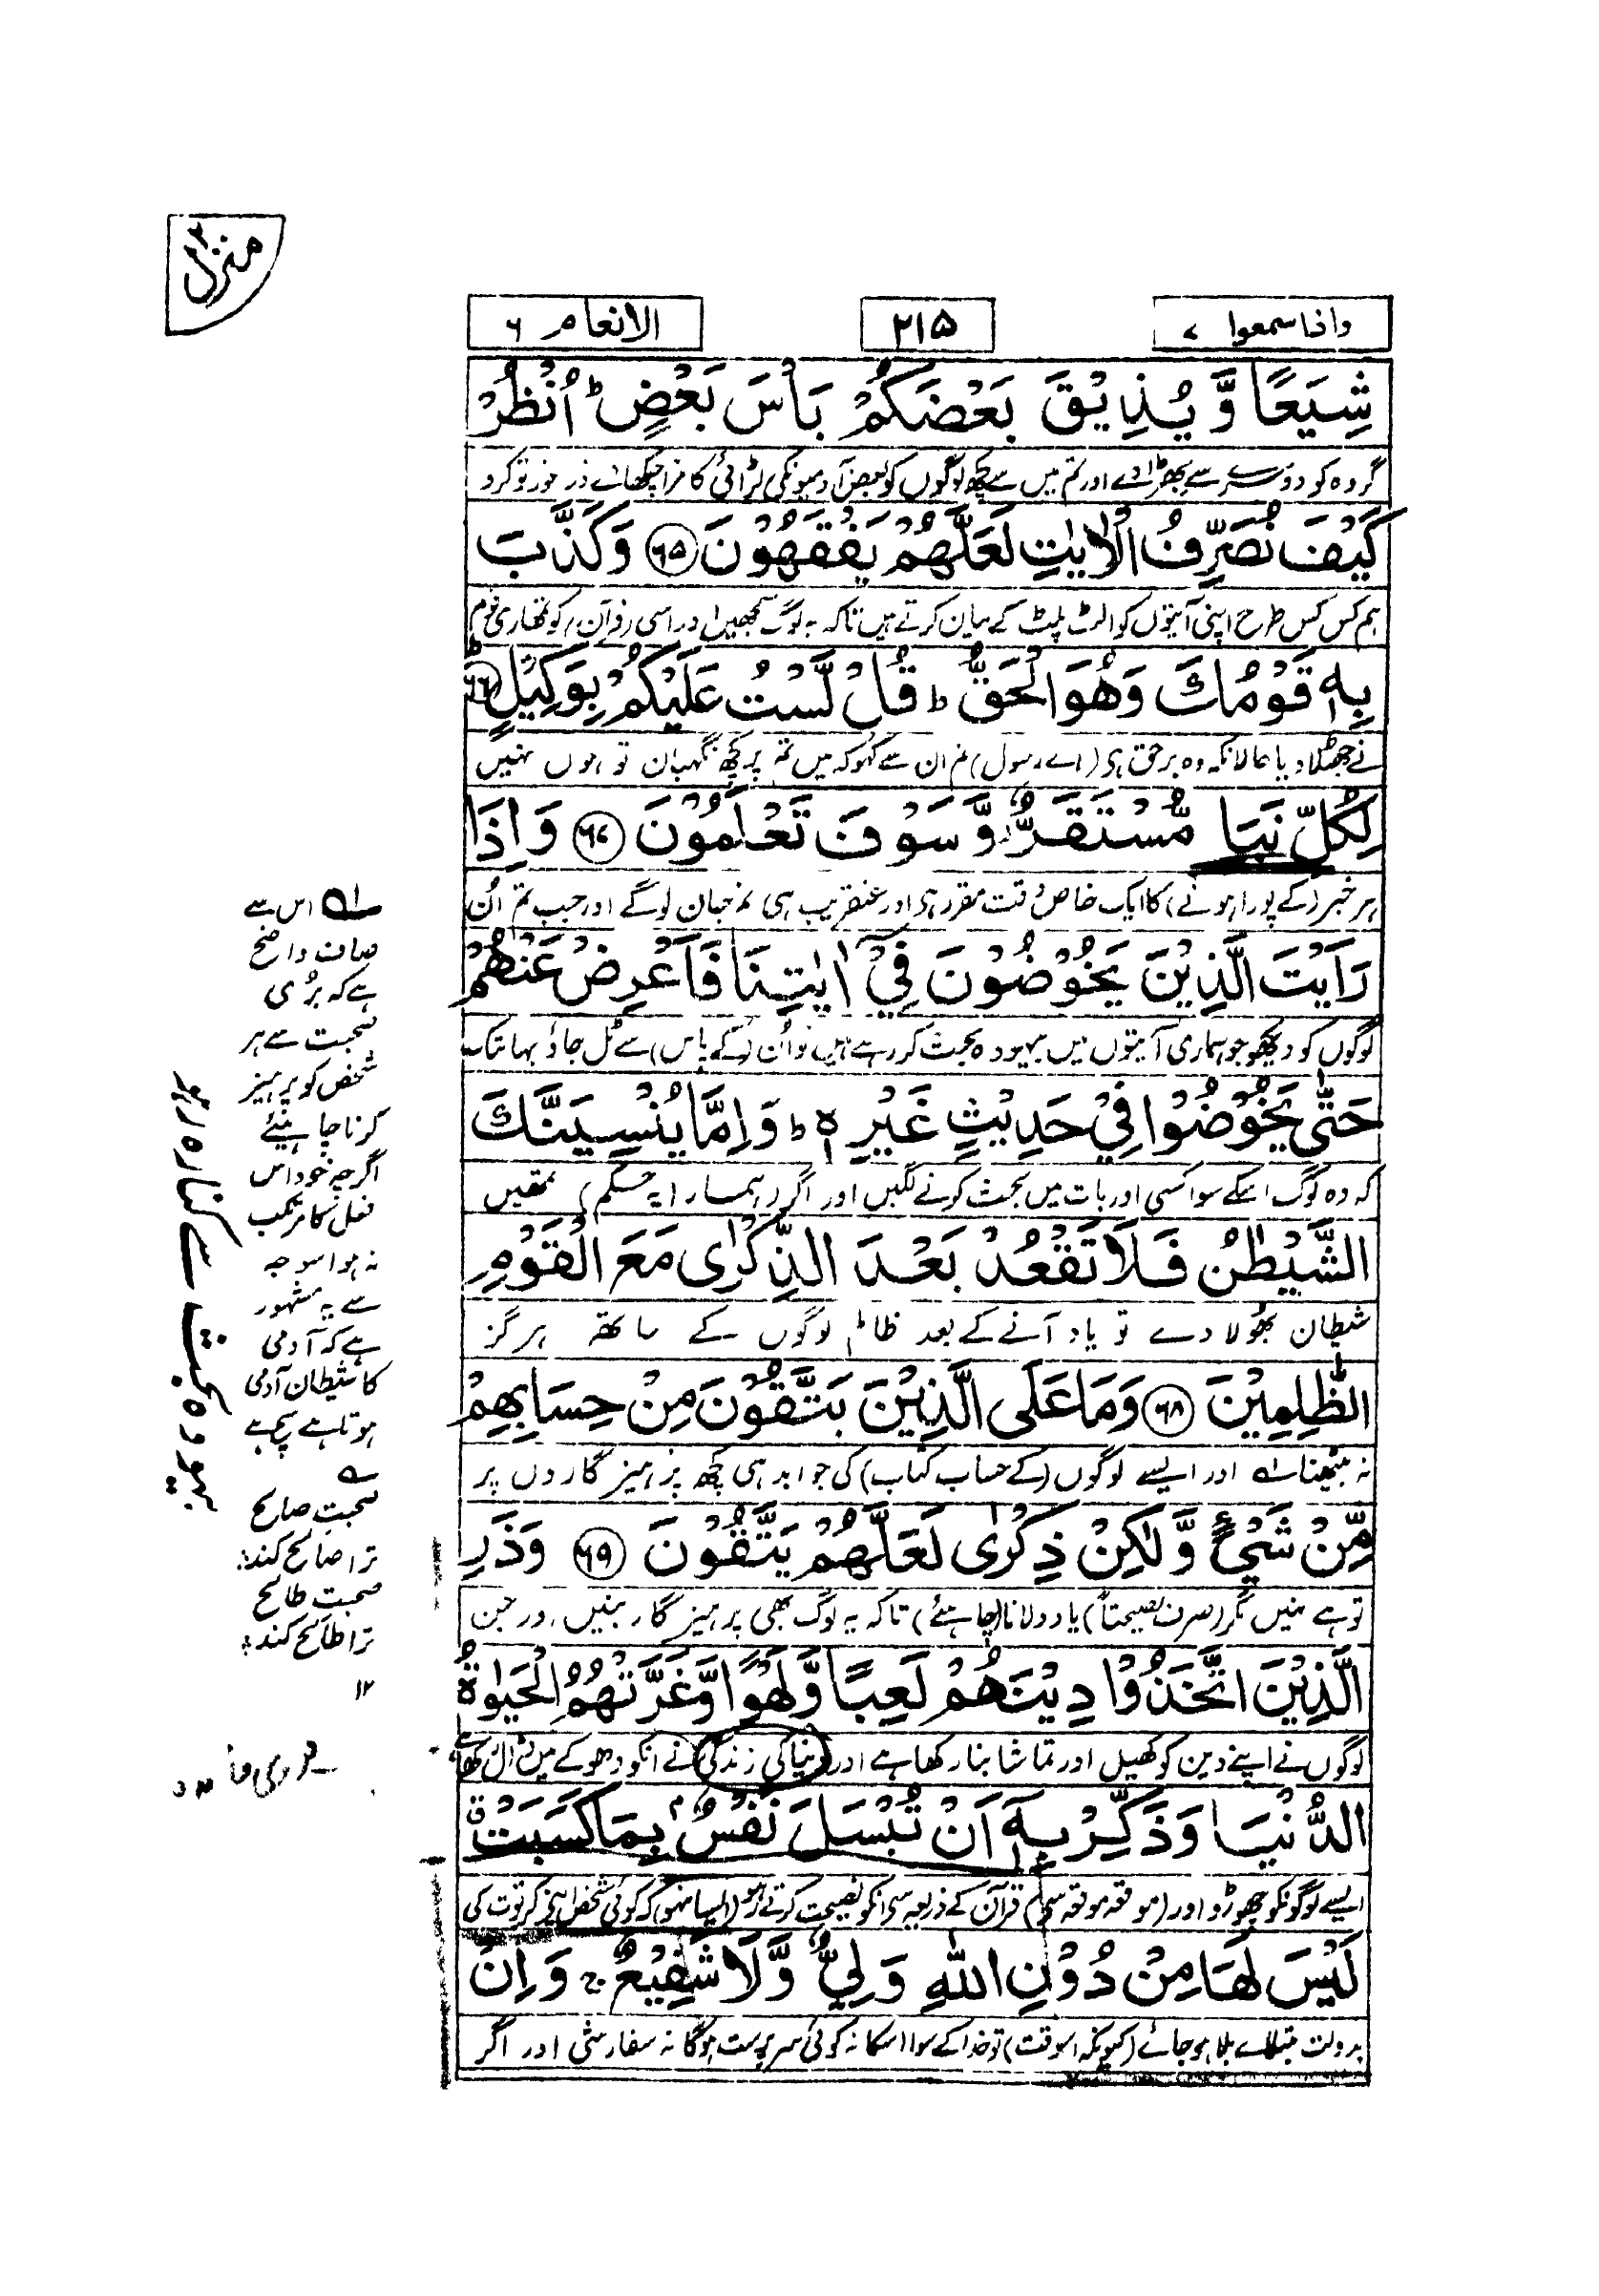 منزل ۲
واذا سمعوا ۷
۲۱۵
الانعام ۶
شِيَعًا وَّ يُذِيْقَ بَعْضَكُمْ بَاْسَ بَعْضٍ ؕ اُنْظُرْ
گروہ کو دوسرے سے بھڑا دے اور تم میں سے کچھ لوگوں کو بعض آدمیونکی لڑائی کا مزا چکھائے ذر غور تو کرو
كَيْفَ نُصَرِّفُ الْاٰيٰتِ لَعَلَّهُمْ يَفْقَهُوْنَ ۶۵ وَكَذَّبَ
ہم کس کس طرح اپنی آیتوں کو الٹ پلٹ کے بیان کرتے ہیں تاکہ یہ لوگ سمجھیں اور اسی (قرآن) کو تمھاری قوم
بِهٖ قَوْمُكَ وَهُوَ الْحَقُّ ؕ قُلْ لَّسْتُ عَلَيْكُمْ بِوَكِيْلٍ ؕ ۶۶
نے جھٹلا دیا حالانکہ وہ برحق ہی (اے رسول) تم ان سے کہو کہ میں تم پر کچھ نگہبان تو ہوں نہیں
لِكُلِّ نَبَاٍ مُّسْتَقَرٌّ وَّ سَوْفَ تَعْلَمُوْنَ ۶۷ وَ اِذَا
ہر خبر (کے پورا ہونے) کا ایک خاص وقت مقرر ہی اور عنقریب ہی تم جان لوگے اور جب تم اُن
رَاَيْتَ الَّذِيْنَ يَخُوْضُوْنَ فِيْٓ اٰيٰتِنَا فَاَعْرِضْ عَنْهُمْ
لوگوں کو دیکھو جو ہماری آیتوں میں بیہودہ بحث کر رہے ہیں تو اُن (کے پاس) سے ٹل جاؤ یہانتک
حَتّٰى يَخُوْضُوْا فِيْ حَدِيْثٍ غَيْرِهٖ ؕ وَاِمَّا يُنْسِيَنَّكَ
کہ وہ لوگ اسکے سوا کسی اور بات میں بحث کرنے لگیں اور اگر (ہمارا یہ حکم) تمھیں
الشَّيْطٰنُ فَلَا تَقْعُدْ بَعْدَ الذِّكْرٰى مَعَ الْقَوْمِ
شیطان بھُولا دے تو یاد آنے کے بعد ظالم لوگوں کے ساتھ ہرگز
الظّٰلِمِيْنَ ۶۸ وَمَا عَلَى الَّذِيْنَ يَتَّقُوْنَ مِنْ حِسَابِهِمْ
نہ بیٹھنا اور ایسے لوگوں (کے حساب کتاب) کی جوابدہی کچھ پرہیزگاروں پر
مِّنْ شَيْءٍ وَّ لٰكِنْ ذِكْرٰى لَعَلَّهُمْ يَتَّقُوْنَ ۶۹ وَذَرِ
تو ہے نہیں مگر (صرف نصیحتاً) یاد دلانا (چاہئے) تاکہ یہ لوگ بھی پرہیزگار بنیں اور جن
الَّذِيْنَ اتَّخَذُوْا دِيْنَهُمْ لَعِبًا وَّ لَهْوًا وَّ غَرَّتْهُمُ الْحَيٰوةُ
لوگوں نے اپنے دین کو کھیل اور تماشا بنا رکھا ہے اور دنیا کی زندگی نے انکو دھوکے میں ڈال رکھا ہے
الدُّنْيَا وَ ذَكِّرْ بِهٖٓ اَنْ تُبْسَلَ نَفْسٌۢ بِمَا كَسَبَتْ
ایسے لوگونکو چھوڑو اور (موقعہ موقعہ سے) قرآن کے ذریعہ سے انکو نصیحت کرتے رہو (ایسا نہو) کہ کوئی شخص اپنے کرتوت کی
لَيْسَ لَهَا مِنْ دُوْنِ اللّٰهِ وَلِيٌّ وَّلَا شَفِيْعٌ ۚ وَ اِنْ
بدولت مبتلائے بلا ہو جائے (کیونکہ اسوقت) تو خدا کے سوا اسکا نہ کوئی سرپرست ہوگا نہ سفارشی اور اگر
اس سے
صاف واضح
ہے کہ بُری
صحبت سے ہر
شخص کو پرہیز
کرنا چاہئیے
اگرچہ خود اس
فعل کا مرتکب
نہ ہو اسوجہ
سے یہ مشہور
ہے کہ آدمی
کا شیطان آدمی
ہوتا ہے سچ ہے
صحبت صالح
ترا صالح کند
صحبت طالح
ترا طالح کند
۱۲
بیہودہ بحث سے کنارہ رہو